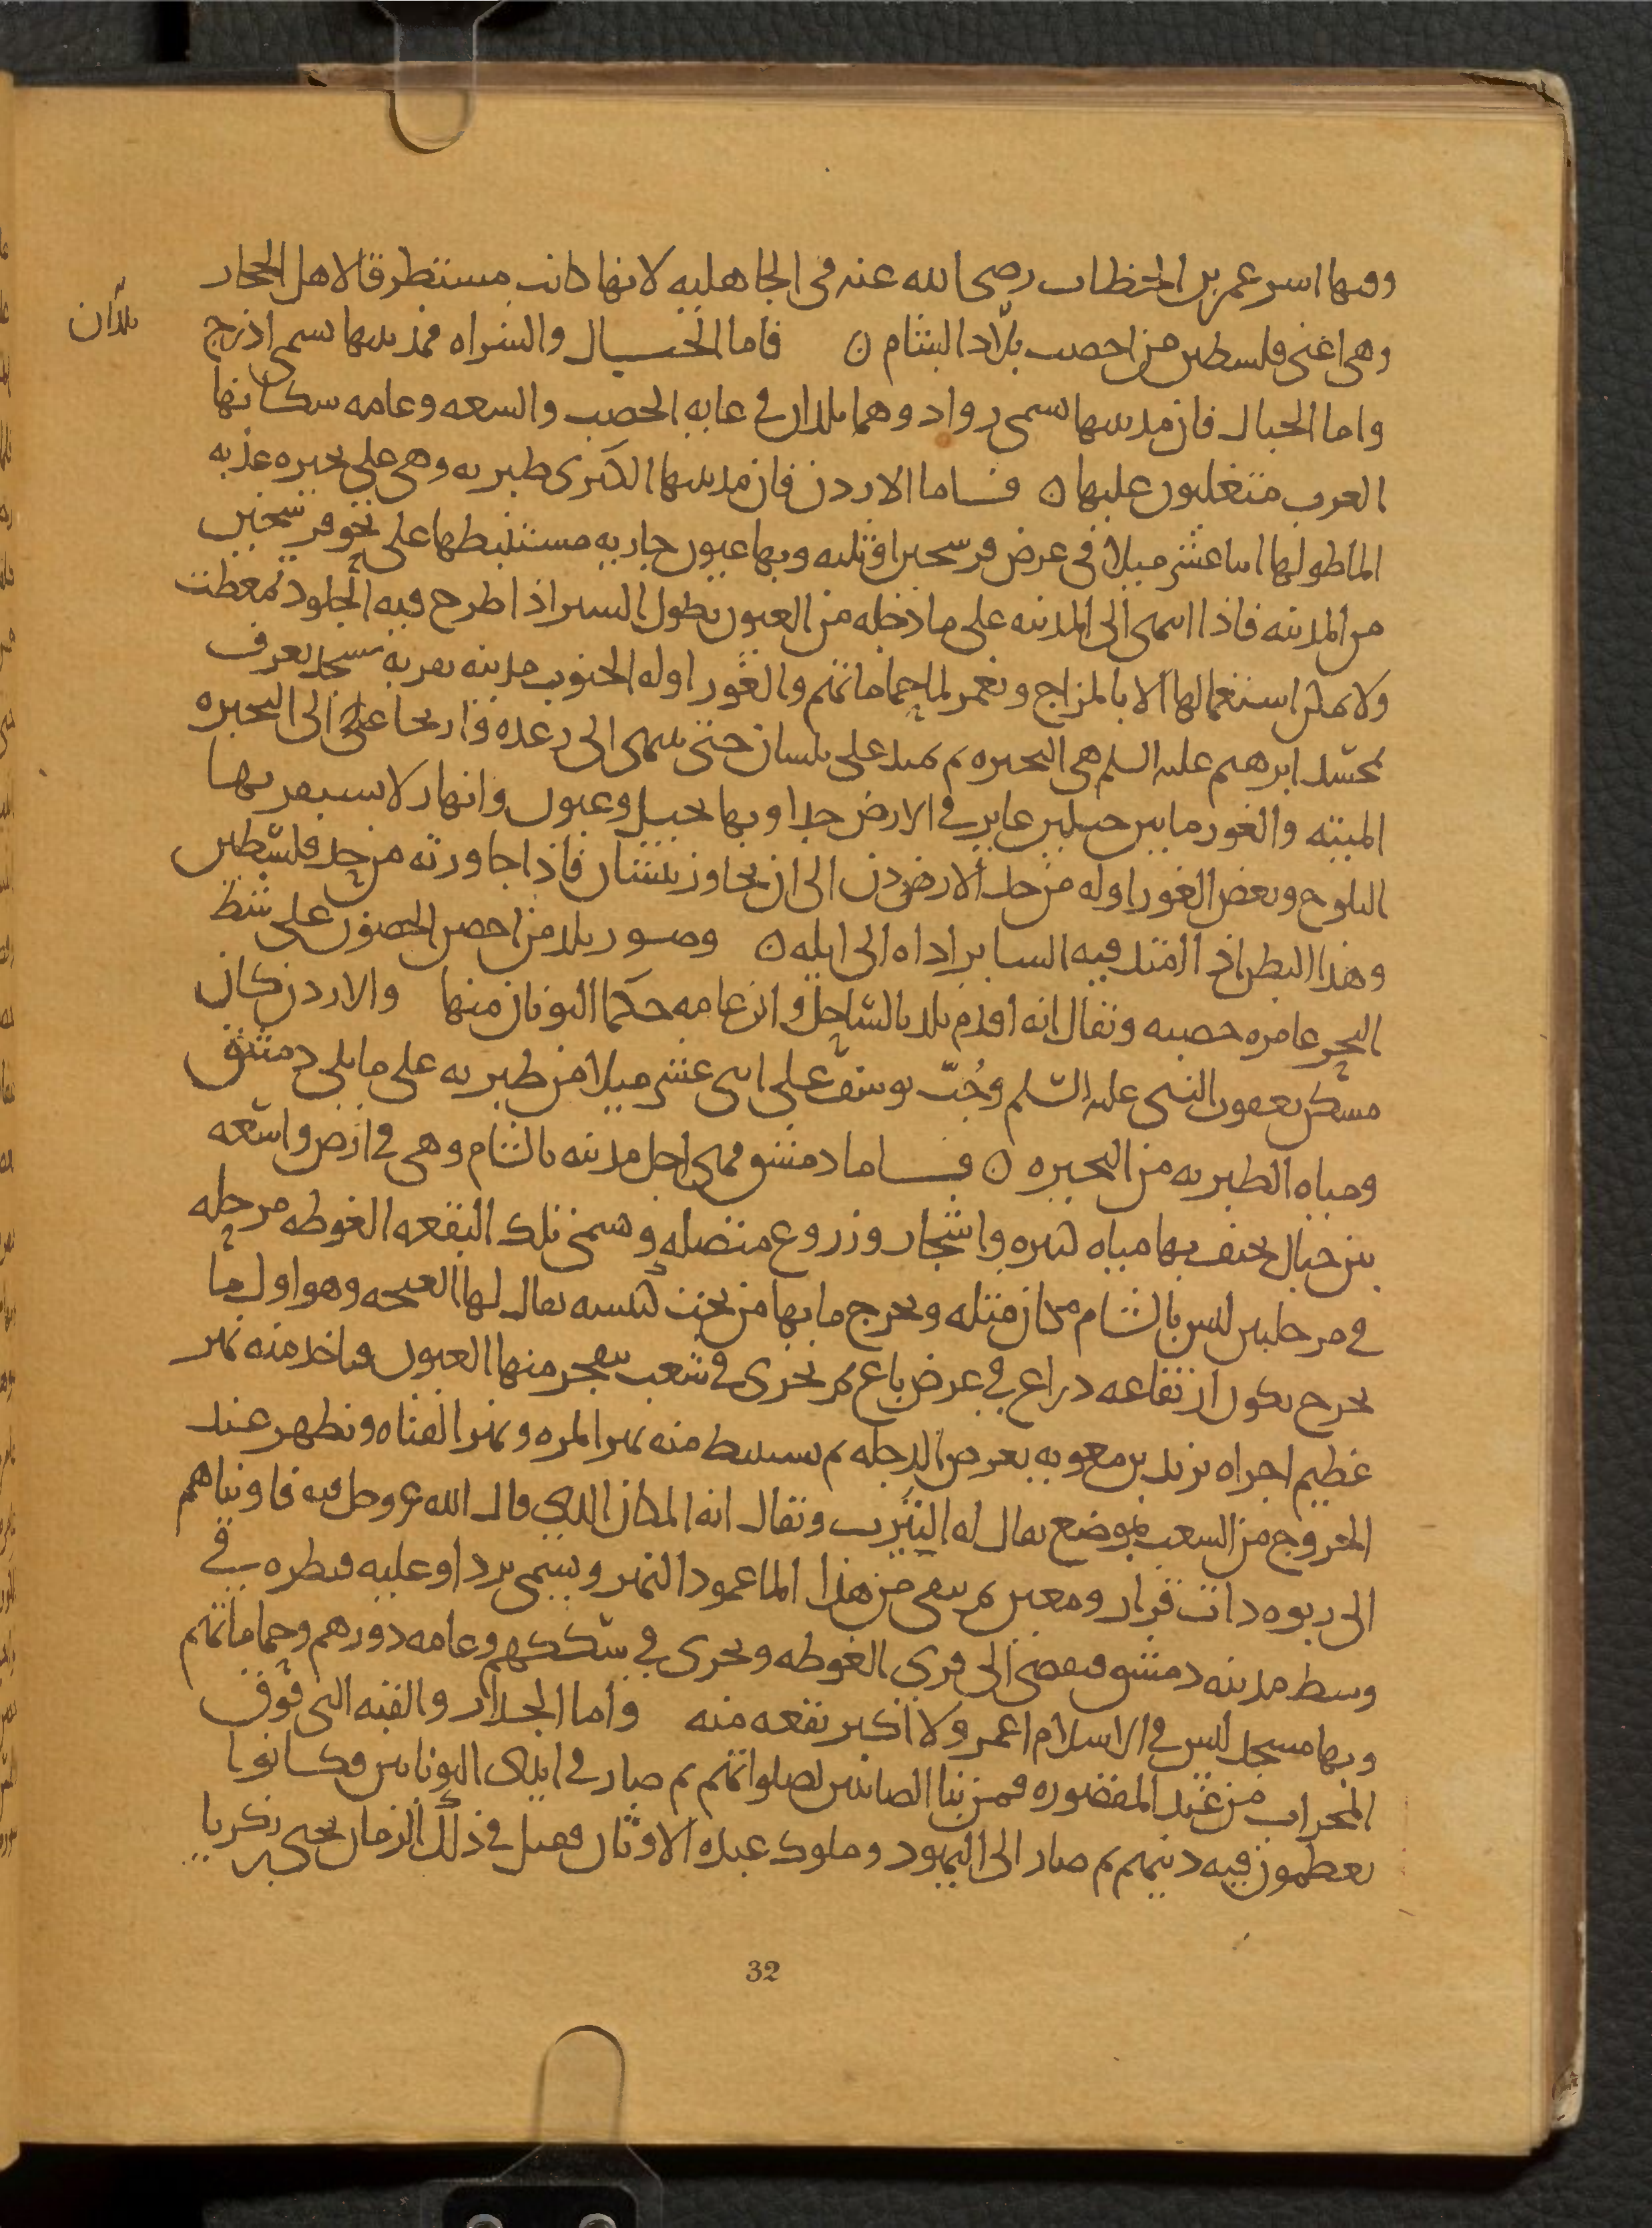 وفيها اسر عمر بن الخطاب رضى الله عنه فى الجاهليه لانها كانت مستطرقا لاهل الحجاز
وهى اعنى فلسطين من اخصب بلاد الشام ن فاما الجبال والشراه فمدينتها تسمى اذرح
بلدان
واما الجبال فان مدينتها تسمى رواد وهما بلدان فى غايه الخصب والسعه وعامه سكانها
العرب متغلبون عليها ن فاما الاردن فان مدينتها الكبرى طبريه وهى على بحيره عذبه
الما طولها اثنا عشر ميلا فى عرض فرسخين او ثلثه وبها عيون جاريه مستنبطها على نحو فرسخين
من المدينه فاذا انتهى الى المدينه على ما دخله من العيون بطول السير اذا طرح فيه الجلود تمعطت
ولا يمكن استعمالها الا بالمزاج ويعم الما حماماتهم والغور اوله الجنوب مدينه بقربه مسجد يعرف
بمسجد ابرهيم عليه السلم هى البحيره ثم يمتد على بيسان حتى ينتهى الى زعر واريحا على الى البحيره
الميته والغور ما بين جبلين غاير فى الارض جدا وبها نخيل وعيون وانهار لا يستقر بها
الثلوج وبعض الغور اوله من حد الاردن الى ان يجاوز بيسان فاذا جاوزته من حد فلسطين
وهذا البطن اذا امتد فيه الساير اداه الى ايله ن وصور بلد من احصن الحصون على شط
البحر عامره خصبه ويقال انه اقدم بلد بالساحل وان عامه حكما اليونان منها والاردن كان
مسكن يعقوب النبى عليه السلم وجُبّ يوسف على اثنى عشر ميلا من طبريه على ما يلى دمشق
ومياه الطبريه من البحيره ن فاما دمشق فهى اجل مدينه بالشام وهى فى ارض واسعه
بين جبال يحتف بها مياه كثيره واشجار وزروع متصله وتسمى تلك البقعه الغوطه مرحله
فى مرحلتين ليس بالشام مكان مثله ويخرج ما بها من تحت كنيسه يقال لها الفيجه وهو اول ما
يخرج يكون ارتفاعه دراع فى عرض باع ثم يجرى فى شعب يتفجر منها العيون فياخد منه نهر
عظيم اجراه يزيد بن معويه بعرض الدجله ثم يستنبط منه نهر المزه ونهر القناه ويظهر عند
الخروج من الشعب بموضع يقال له النيرب ويقال انه المكان الذى قال الله عز وجل فيه فاويناهم
الى ربوه دات قرار ومعين ثم يبقى من هذا الما عمود النهر ويسمى بردا وعليه قنطره فى
وسط مدينه دمشق فيفضى الى قرى الغوطه ويجرى فى سككهم وعامه دورهم وحماماتهم
وبها مسجد ليس فى الاسلام اعمر ولا اكبر بقعه منه واما الجدار والقبه التى فوق
المحراب من عند المقصوره فمن بنا الصابيين لصلواتهم ثم صار فى ايدى اليونانيين فكانوا
يعظمون فيه دينهم ثم صار الى اليهود وملوك عبده الاوثان فقتل فى ذلك الزمان يحيى بن زكريا
32